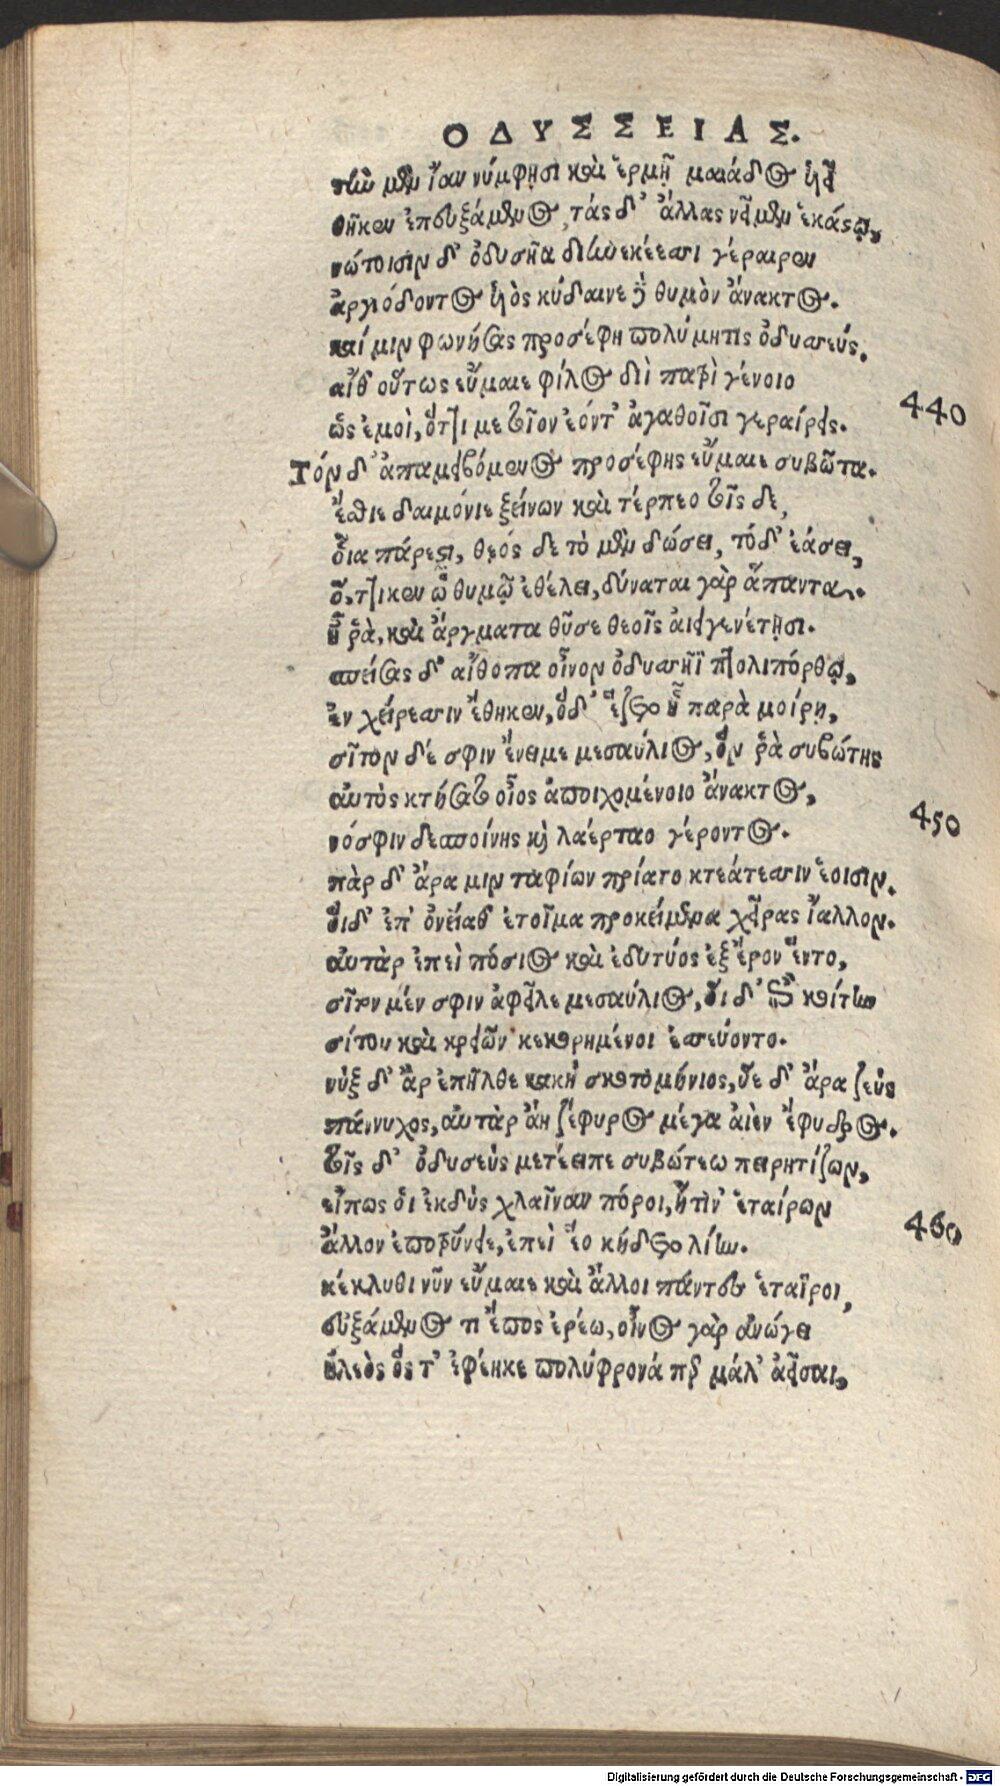 ΟΔΥΣΣΕΙΑΣ.
τὴν μὲν ἴαν νύμφῃσι καὶ ἑρμῇ μαιάδος υἱεῖ
θῆκεν ἐπευξάμενος, τάς δ' ἄλλας νεῖμεν ἑκάστῳ,
νώτοισιν δ' ὀδυσῆα διηνεκέεσσι γέραιρεν
ἀργιόδοντος ὑὸς κύδαινε δὲ θυμὸν ἄνακτος.
καί μιν φωνήσας προσέφη πολύμητις ὀδυσσεύς.
αἴθ' οὕτως εὔμαιε φίλος διὶ πατρὶ γένοιο
440
ὡς ἐμοὶ, ὅττι με τοῖον ἐόντ' ἀγαθοῖσι γεραίρεις.
Τόν δ' ἀπαμειβόμενος προσέφης εὔμαιε συβῶτα.
ἔσθιε δαιμόνιε ξείνων καὶ τέρπεο τοῖς δε,
οἷα πάρεστι, θεός δε τὸ μὲν δώσει, τόδ' ἐάσει,
ὅ,ττικεν ᾧ θυμῷ ἐθέλει, δύναται γὰρ ἅπαντα.
ἦ ῥὰ, καὶ ἄργματα θῦσε θεοῖς ἀιειγενέτῃσι.
σπείσας δ' αἴθοπα οἶνον ὀδυσσῆϊ πτολιπόρθῳ,
ἐν χείρεσσιν ἔθηκεν, ὅδ' ἕζετο ᾗ παρὰ μοίρῃ,
σῖτον δέ σφιν ἔνειμε μεσαύλιος, ὅν ῥὰ συβώτης
αὐτὸς κτήσατο οἶος ἀποιχομένοιο ἄνακτος,
450
νόσφιν δεσποίνης καὶ λαέρταο γέροντος.
πὰρ δ' ἄρα μιν ταφίων πρίατο κτεάτεσσιν ἑοισιν.
ὅιδ' ἐπ' ὀνείαθ' ἑτοῖμα προκείμενα χεῖρας ἴαλλον.
αὐτὰρ ἐπεὶ πόσιος καὶ ἐδητύος ἐξ ἔρον ἕντο,
σῖτον μέν σφιν ἀφεῖλε μεσαύλιος, ὅι δ' ἐπὶ κοίτην
σίτου καὶ κρειῶν κεκορημένοι ἐσσεύοντο.
νὺξ δ' ἄρ ἐπῆλθε κακὴ σκοτομήνιος, ὗε δ' ἄρα ζεὺς
πάννυχος, αὐτὰρ ἄη ζέφυρος μέγα ἀιὲν ἔφυδρος.
τοῖς δ' ὀδυσεὺς μετέειπε συβώτεω πειρητίζων,
εἴπως ὁι ἐκδὺς χλαῖναν πόροι, ἤ τιν' ἑταίρων
460
ἄλλον ἐποτρύνειε, ἐπεὶ ἕο κήδετο λίην.
κέκλυθι νῦν εὔμαιε καὶ ἄλλοι πάντες ἑταῖροι,
εὐξάμενος τι ἔπος ἐρέω, οἶνος γὰρ ἀνώγει
ἠλεὸς ὅς τ' ἐφέηκε πολύφρονά περ μάλ' ἀεῖσαι,
Digitalisierung gefördert durch die Deutsche Forschungsgemeinschaft - DFG